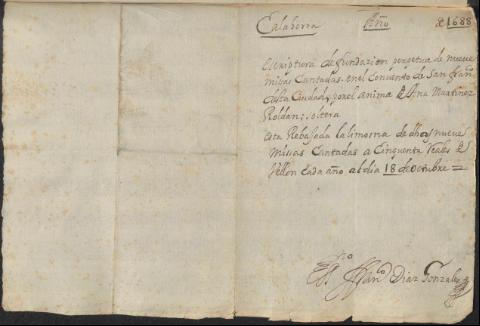 Calahorra Año de 1688
Escriptura de fundazion perpetua de nueve
misas Cantadas, en el Convento de San fran
desta Ciudad, por el anima de Ana Martinez
Roldan; soltera
esta Rebajada la limosna de dhas nueve
Misas Cantadas a Cinquenta Reales de
Vellon cada año al dia 18 de octubre
Diaz Gonzalez